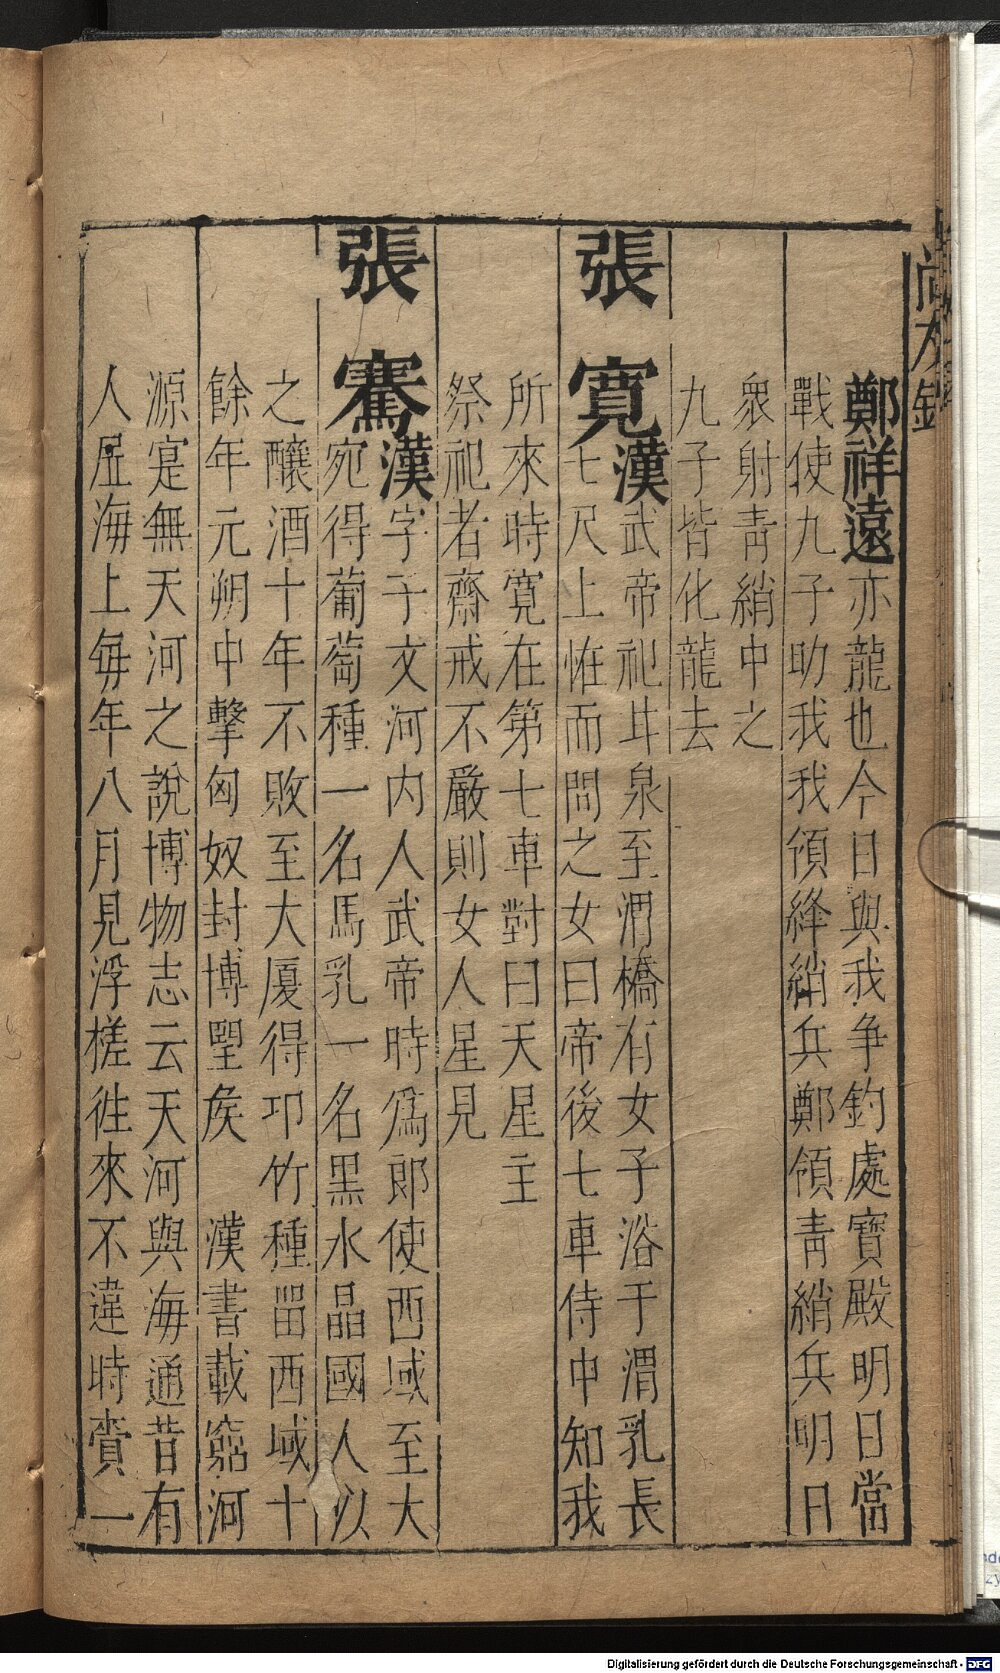 鄭祥遠亦龍也今日與我爭釣處寶殿明日當
戰使九子助我我領絳綃兵鄭領青綃兵明日
衆射青綃中之
九子皆化龍去
張寬漢武帝祀甘泉至渭橋有女子浴于渭乳長
七尺上恠而問之女曰帝後七車侍中知我
所來時寬在第七車對曰天星主
祭祀者齋戒不嚴則女人星見
張騫漢字子文河内人武帝時爲郎使西域至大
宛得葡萄種一名馬乳一名黒水晶國人以
之釀酒十年不敗至大厦得邛竹種留西域十
餘年元朔中擊匈奴封博望矦 漢書載窮河
源寔無天河之說博物志云天河與海通昔有
人居海上每年八月見浮槎徃來不違時賫一
Digitalisierung gefördert durch die Deutsche Forschungsgemeinschaft - DFG